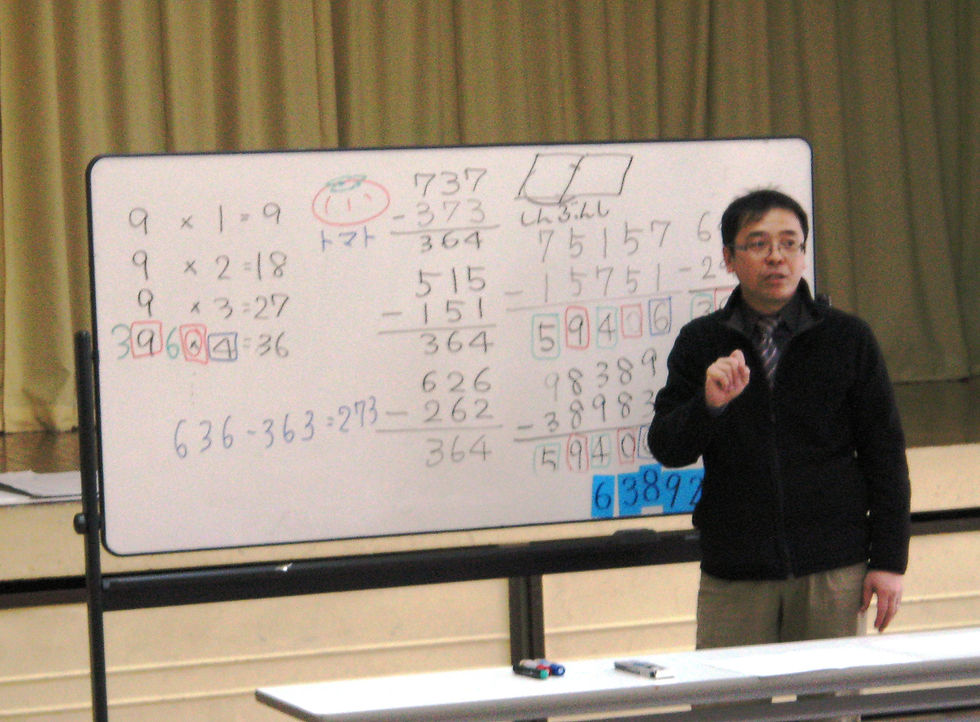 9 × 1 = 9
9 × 2 = 18
9 × 3 = 27
39604 = 36
636 - 363 = 273
トマト
737
- 373
364
515
- 151
364
626
- 262
364
しんぶんし
75157
- 15751
59406
98389
- 38983
5940
6
- 2
3
63892